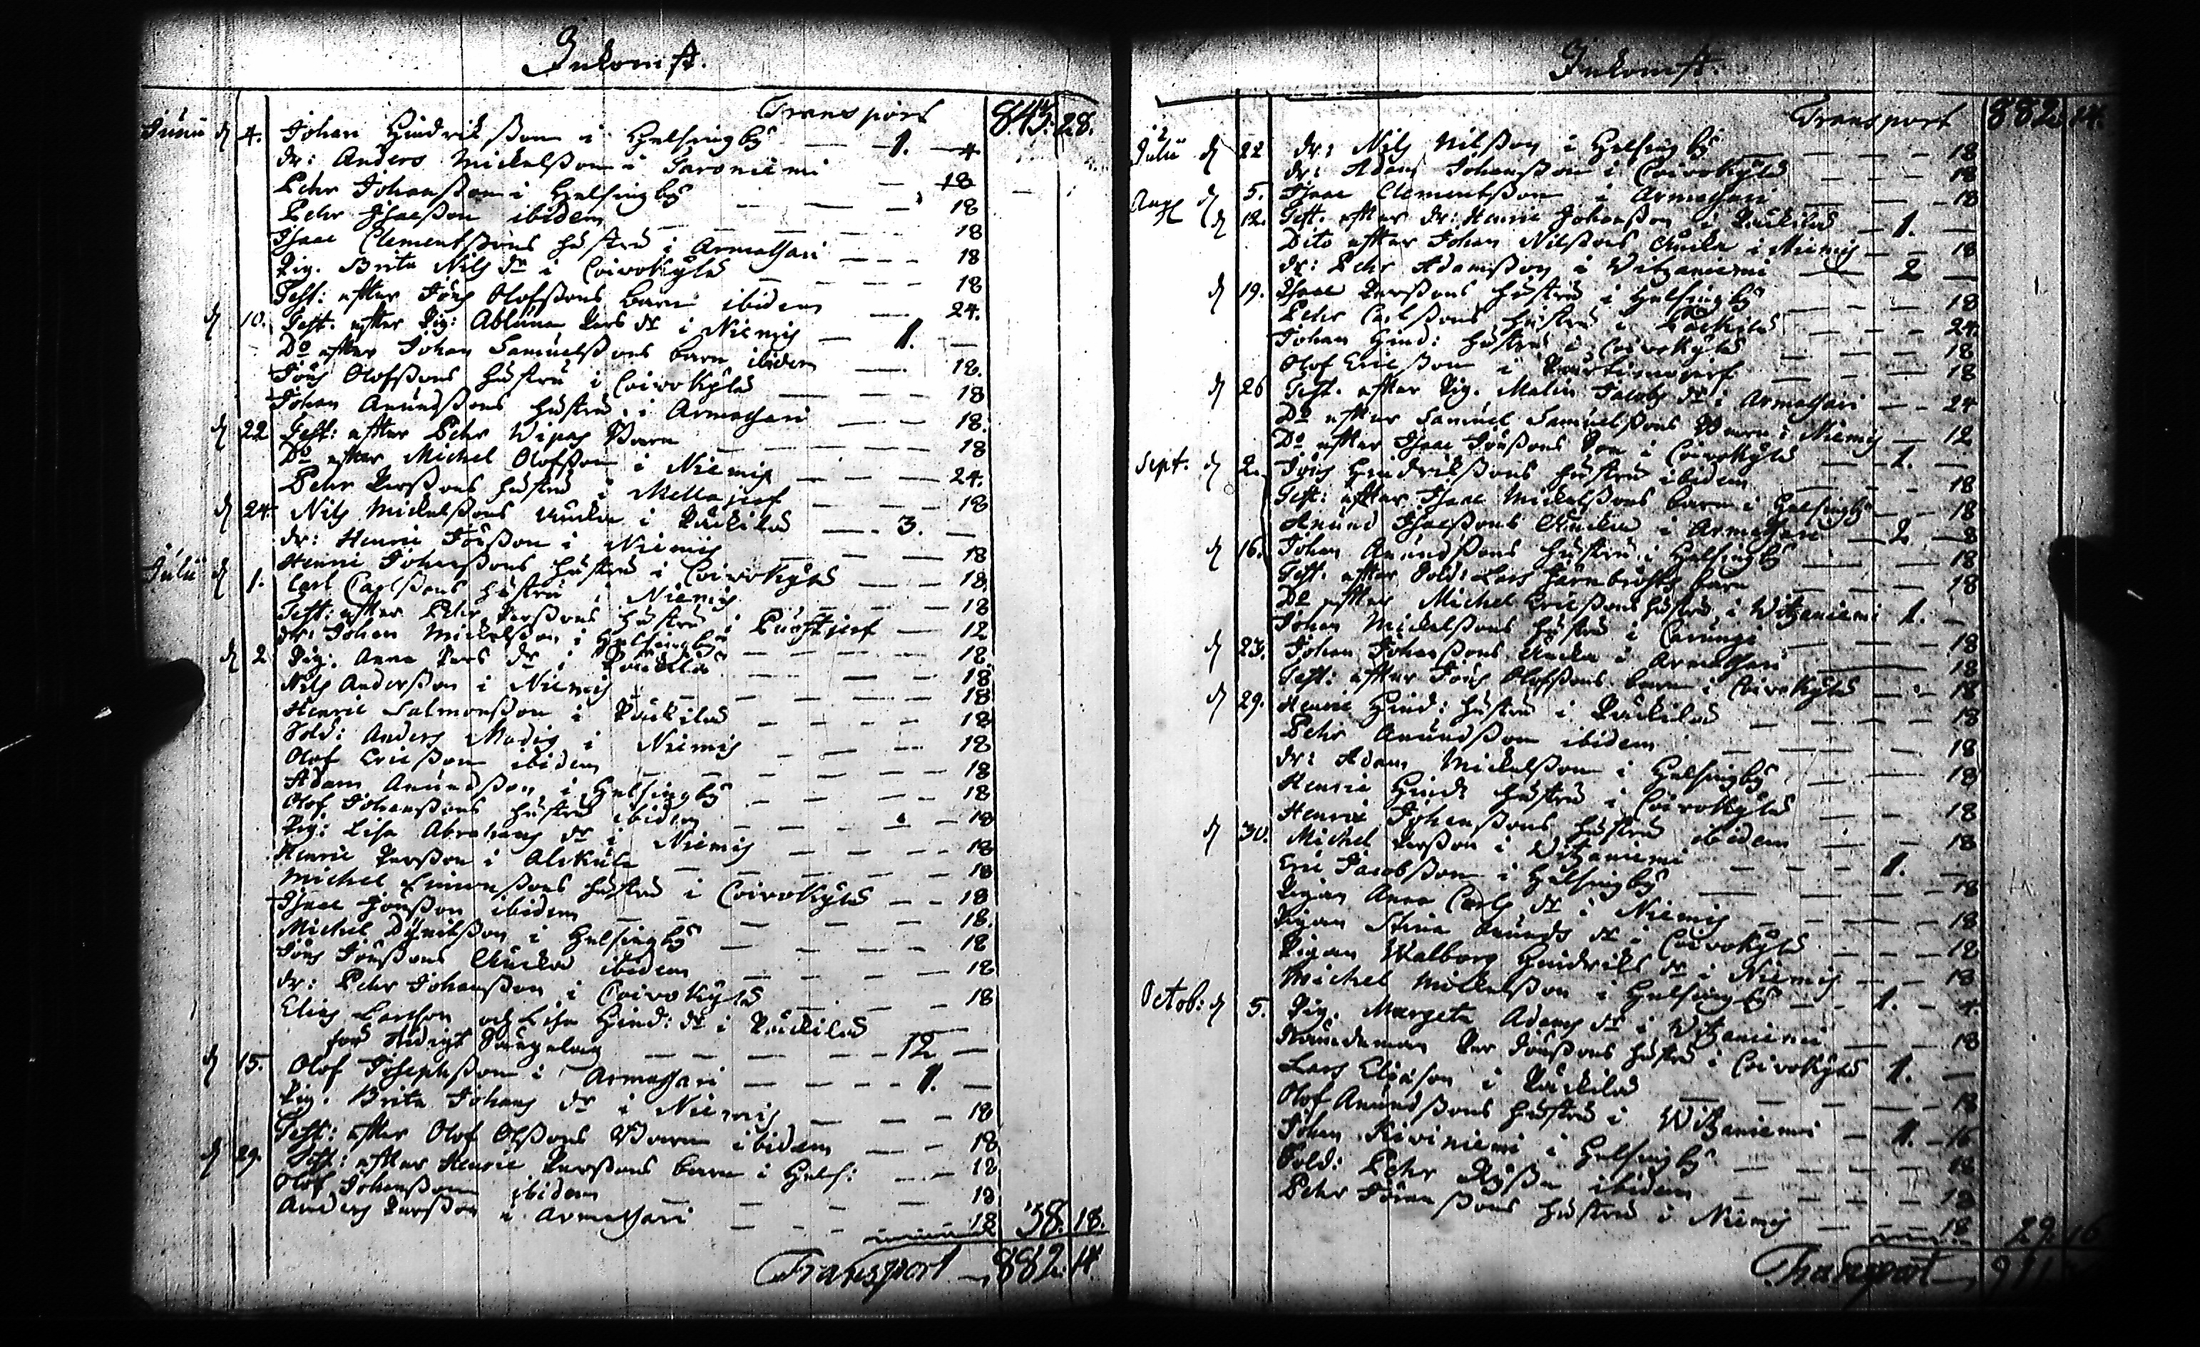 Inkomst.
Transport 843. 28.
Junii d 4. Johan Hindrikßon i Helsingby — 1. — 4.
dr: Anders Mickelßon i Saroniemi — 18
Pehr Johanßon i Helsingby — 18
Pehr Isacßon ibidem — 18
Isaac Clementßons hustru i Armassari — 18
Pig. Brita Nils dr i Coivokylä — 18
Test: efter Jöns Olofßons barn ibidem — 24.
d 10. Test. efter Pig: Abluna Pers dr i Niemis — 1. —
Do efter Johan Samuelßons barn ibidem — 18.
Jöns Olofßons hustru i Coivokylä — 18
Johan Anundßons hustru i Armassari — 18.
d 22 Test: efter Pehr Wipas Barn — 18
Do efter Michel Olofßon i Niemis — 24.
Pehr Perßons hustru i Mella jerf — 18
d 24. Nils Mickelßons Encka i Päckilä — 3. —
dr: Henric Jönßon i Niemis — 18
Henric Johanßons hustru i Coivokylä — 18
Julii d 1. Carl Carlßons hustru i Niemis — 18
Test: efter Pehr Perßons hustru i Puostijerf — 12
dr: Johan Mickelßon i Helsingby — 18.
d 2 Pig: Anna Pers dr i Päckilä — 18
Nils Anderßon i Niemis — 18
Henric Salmonßon i Päckilä — 18
Sold: Anders Modig i Niemis — 18
Olof Ericßon ibidem — 18
Adam Anundßon i Helsingby — 18
Olof Johanßons hustru ibidem — 18
Pig: Lisa Abrahams dr i Niemis — 18
Henric Perßon i Alkula — 18
Michel Simonßons hustru i Coivokylä — 18
Isaac Jönßon ibidem — 18.
Michel Dijnikßon i Helsingby — 18
Jöns Jönßons Encka ibidem — 18
dr: Pehr Johanßon i Coivokylä — 18
Elias Larsson och Lisa Hind: dr i Päckilä
för tidigt Sängelag — 12 —
d 15. Olof Josephßon i Armassari — 1. —
Pig. Brita Johans dr i Niemis — 18
Test: efter Olof Olßons Barn ibidem — 18
d 29. Test: efter Henric Perßons barn i Hels: — 18
Olof Johanßon ibidem — 18
Anders Perßon i Armassari — 18 38. 18.
Transport — 882. 14.
Inkomst.
Transport 882. 14.
Julii d 22 dr: Nils Nilßon i Helsingby — 18
dr: Adam Johanßon i Coivokylä — 18
Aug d 5. Isaac Clementßon i Armassari — 18
d 12. Test. efter dr: Henric Johanßon i Päckilä — 1. —
Dito efter Johan Nilßons Encka i Niemis — 18
dr: Pehr Adamßon i Witzaniemi — 2 —
d 19. Isaac Perßons hustru i Helsingby — 18
Pehr Carlßons hustru i Päckilä — 24.
Johan Hind: hustru i Coivokylä — 18
Olof Ericßon i — 18
d 26 Test. efter Pig. Malin Jacobs dr i Armassari — 24
Do efter Samuel Samuelßons Barn i Niemis — 12
Do efter Isaac Jönßons Son i Coivokylä — 1. —
Sept. d 2. Jöns Hendrikßons hustru ibidem — 18
Test: efter Isaac Mickelßons barn i Helsingby — 18
Anund Isacßons Encka i Armassari — 2 — 8
d 16. Johan Anundßons hustru i Helsingby — 18
Test. efter Sold: Lars barn — 18
Do efter Michel Ericßons hustru i Witzaniemi 1. —
Johan Mickelßons hustru i Carunge — 18
d 23. Johan Johanßons Encka i Armassari — 18
Test: efter Jöns Olofßons barn i Coivokylä — 18
d 29. Henric Hind: hustru i Päckilä — 18
Pehr Anundßon ibidem — 18
dr: Adam Mickelßon i Helsingby — 18
Henric Hind: hustru i Coivokylä — 18
Henric Johanßons hustru ibidem — 18
d 30. Michel Perßon i Witzaniemi — 1. —
Eric Jacobßon i Helsingby — 18
Pigan Anna Carls dr i Niemis — 18
Pigan Stina Anunds dr i Coivokylä — 18
Pigan Walborg Hindriks dr i Niemis — 18
Michel Mickelßon i Helsingby — 1. — 4.
Octob: d 5. Pig. Margeta Adams dr i Witzaniemi — 18
Nämndeman Per Jönßons hustru i Coivokylä 1. —
Lars Eliason i Päckilä — 18
Olof Anundßons hustru i Witzaniemi — 1. — 16
Johan Kiviniemi i Helsingby — 18
Sold: Pehr Ryßa ibidem — 18
Pehr Jönßons hustru i Niemis — 18 29. 16
Transport — 911.